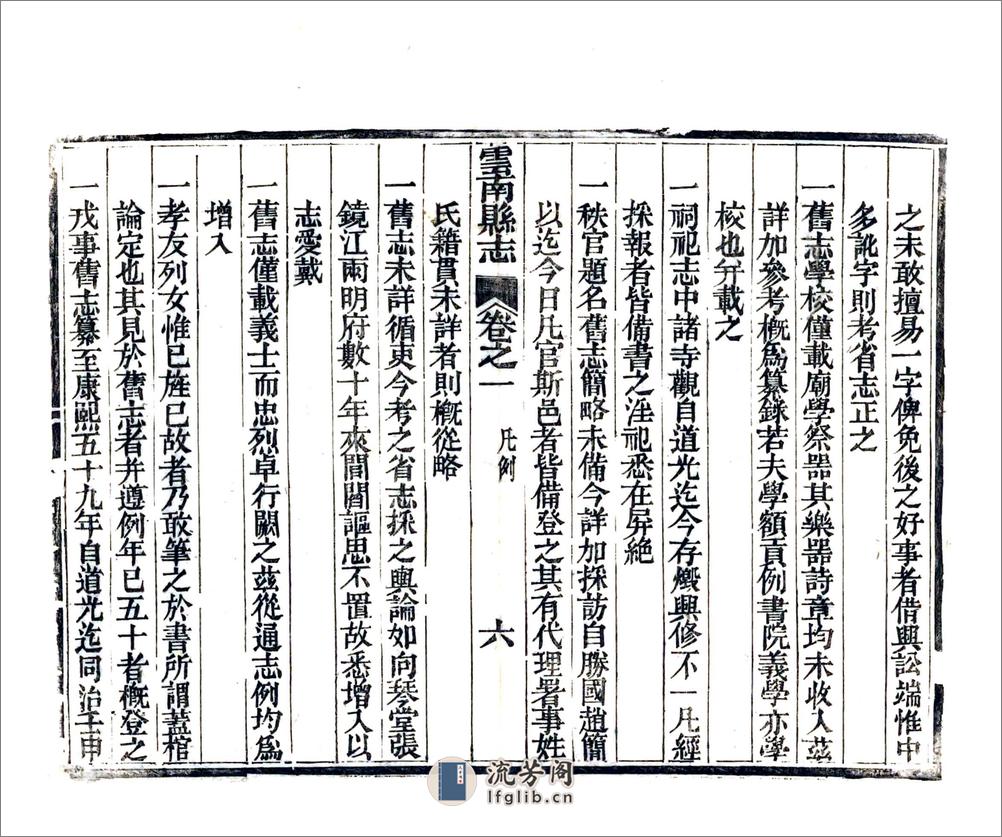 之未敢擅易一字俾免後之好事者借興訟端惟中
多訛字則考省志正之
一舊志學校僅載廟學祭器其樂器詩章均未收入茲
詳加參考槪爲纂錄若夫學額貢例書院義學亦學
校也并載之
一祠祀志中諸寺觀自道光迄今存燬興修不一凡經
採報者皆備書之淫祀悉在屏絶
一秩官題名舊志簡略未備今詳加採訪自勝國趙簡
以迄今日凡官斯邑者皆備登之其有代理署事姓
氏籍貫未詳者則槪從略
雲南縣志 卷之一 凡例 六
一舊志未詳循吏今考之省志採之輿論如向琴堂張
鏡江兩明府數十年來閭閻謳思不置故悉增入以
志愛戴
一舊志僅載義士而忠烈卓行闕之茲從通志例均爲
增入
一孝友列女惟已旌已故者乃敢筆之於書所謂蓋棺
論定也其見於舊志者并遵例年已五十者槪登之
一戎事舊志纂至康熙五十九年自道光迄同治壬申
流芳阁
lfglib.cn